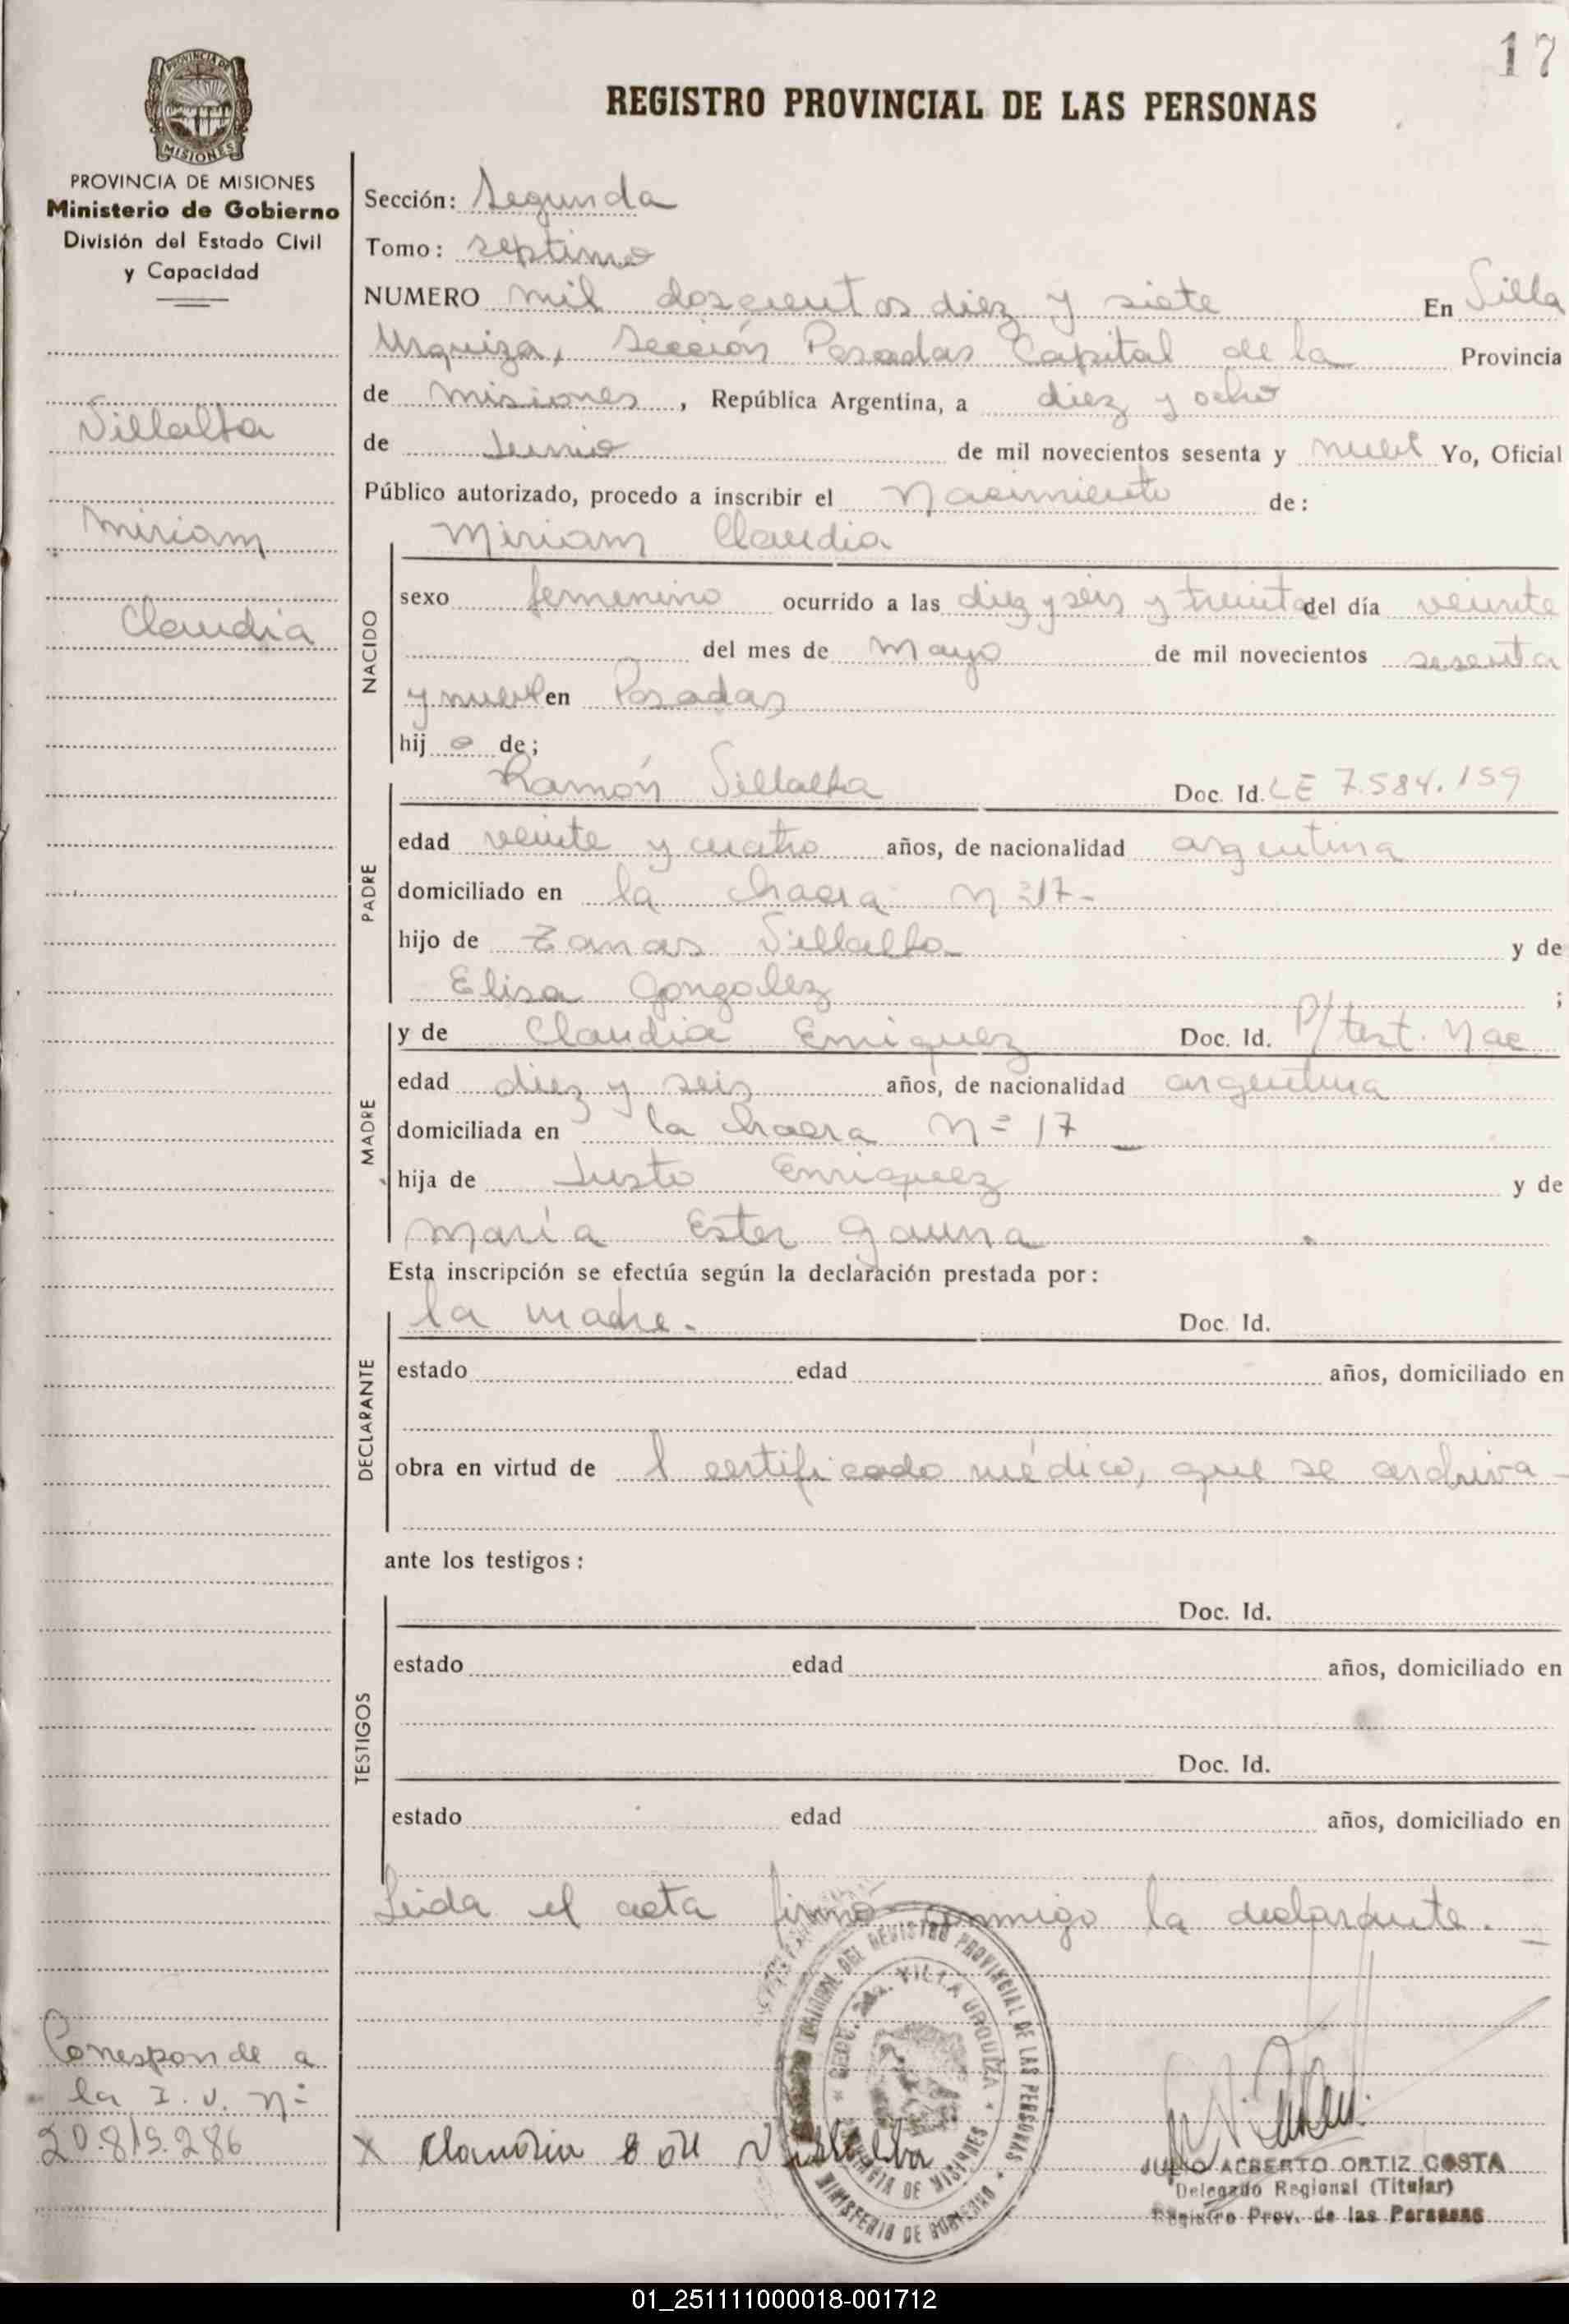 17
PROVINCIA DE
MISIONES
REGISTRO PROVINCIAL DE LAS PERSONAS
PROVINCIA DE MISIONES
Ministerio de Gobierno
División del Estado Civil
y Capacidad
Villalba
Miriam
Claudia
Sección: Segunda
Tomo: septimo
NUMERO mil doscientos diez y siete En Villa
Urquiza, Sección Posadas Capital de la Provincia
de Misiones, República Argentina, a diez y ocho
de Junio de mil novecientos sesenta y nueve Yo, Oficial
Público autorizado, procedo a inscribir el Nacimiento de:
NACIDO
Miriam Claudia
sexo femenino ocurrido a las diez y seis y treinta del día veinte
del mes de Mayo de mil novecientos sesenta
y nueve en Posadas
hij a de;
PADRE
Ramón Villalba Doc. Id. LE 7.584.159
edad veinte y cuatro años, de nacionalidad argentina
domiciliado en la chacra Nº 17-
hijo de Villalba y de
Elisa Gonzalez ;
MADRE
y de Claudia Enriquez Doc. Id. P/ test. Nac
edad diez y seis años, de nacionalidad argentina
domiciliada en la chacra Nº 17
hija de Justo Enriquez y de
María Ester Gauna
Esta inscripción se efectúa según la declaración prestada por:
DECLARANTE
la madre. Doc. Id.
estado edad años, domiciliado en
obra en virtud de l certificado médico, que se archiva-
ante los testigos:
TESTIGOS
Doc. Id.
estado edad años, domiciliado en
Doc. Id.
estado edad años, domiciliado en
Leida el acta firmó conmigo la declarante.
DEL REGISTRO PROVINCIAL DE LAS PERSONAS
VILLA URQUIZA
PROVINCIA DE MISIONES
MINISTERIO DE GOBIERNO
Corresponde a
la I. U. Nº
20.819.286
X Claudia E de Villalba
JULIO ALBERTO ORTIZ COSTA
Delegado Regional (Titular)
Registro Prov. de las Personas
01_251111000018-001712